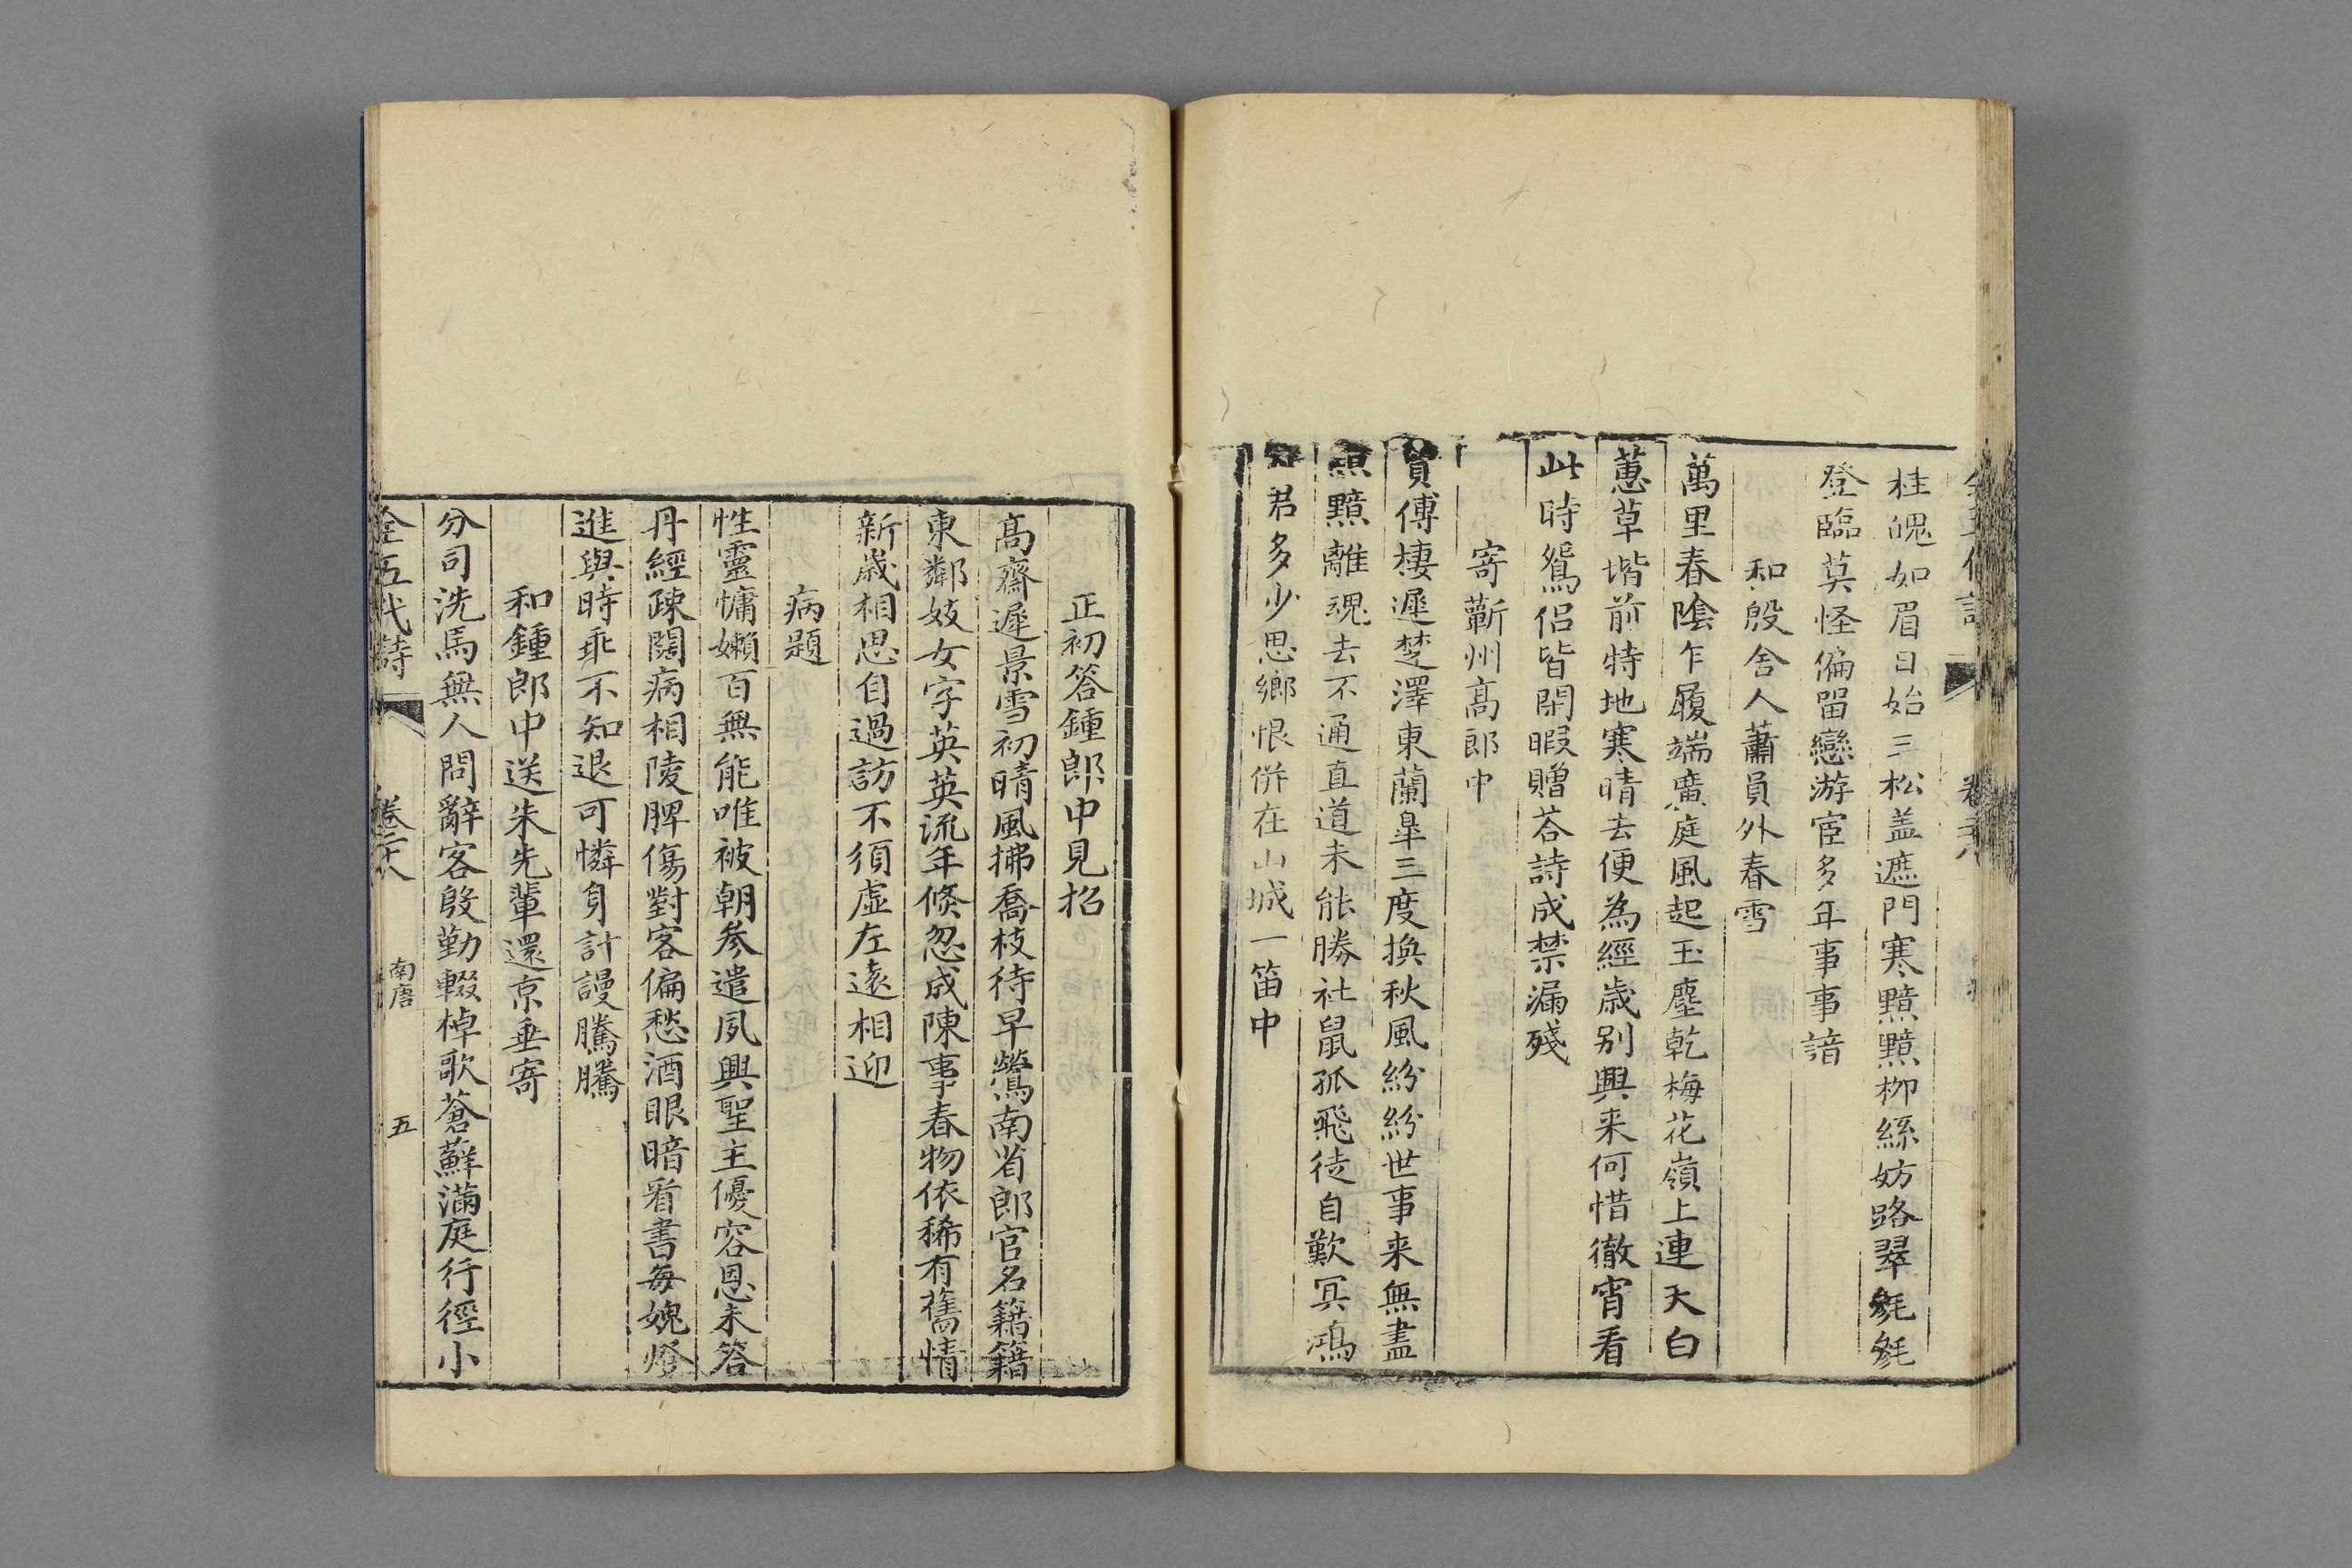 桂魄如眉日始三松盖遮門寒黯黯柳絲妨路翠毿毿
登臨莫怪偏留戀游宦多年事事諳
和殷舍人蕭員外春雪
萬里春陰乍履端廣庭風起玉塵乾梅花嶺上連天白
蕙草堦前特地寒晴去便為經歲别興来何惜徹宵看
此時鴛侣皆閑暇贈荅詩成禁漏殘
寄蘄州高郎中
賈傅棲遲楚澤東蘭皐三度換秋風紛紛世事来無盡
黯黯離魂去不通直道未能勝社鼠孤飛徒自歎冥鴻
知君多少思鄉恨併在山城一笛中
正初答鍾郎中見招
高齋遲景雪初晴風拂喬枝待早鶯南省郎官名籍籍
東鄰妓女字英英流年倏忽成陳事春物依稀有舊情
新歲相思自過訪不須虚左遠相迎
病題
性靈慵嬾百無能唯被朝參遣夙興聖主優容恩未答
丹經疎闊病相陵脾傷對客偏愁酒眼暗看書每媿燈
進與時乖不知退可憐身計謾騰騰
和鍾郎中送朱先輩還京垂寄
分司洗馬無人問辭客殷勤輟棹歌蒼蘚滿庭行徑小
全五代詩
南唐
五